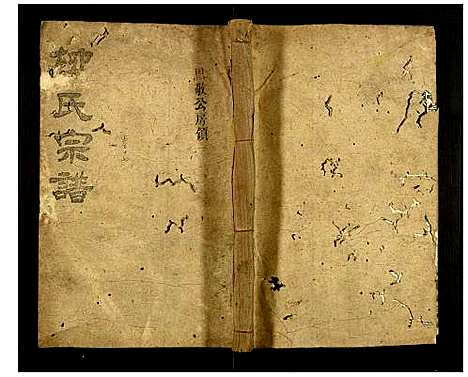 柳氏宗譜
思敬公房領